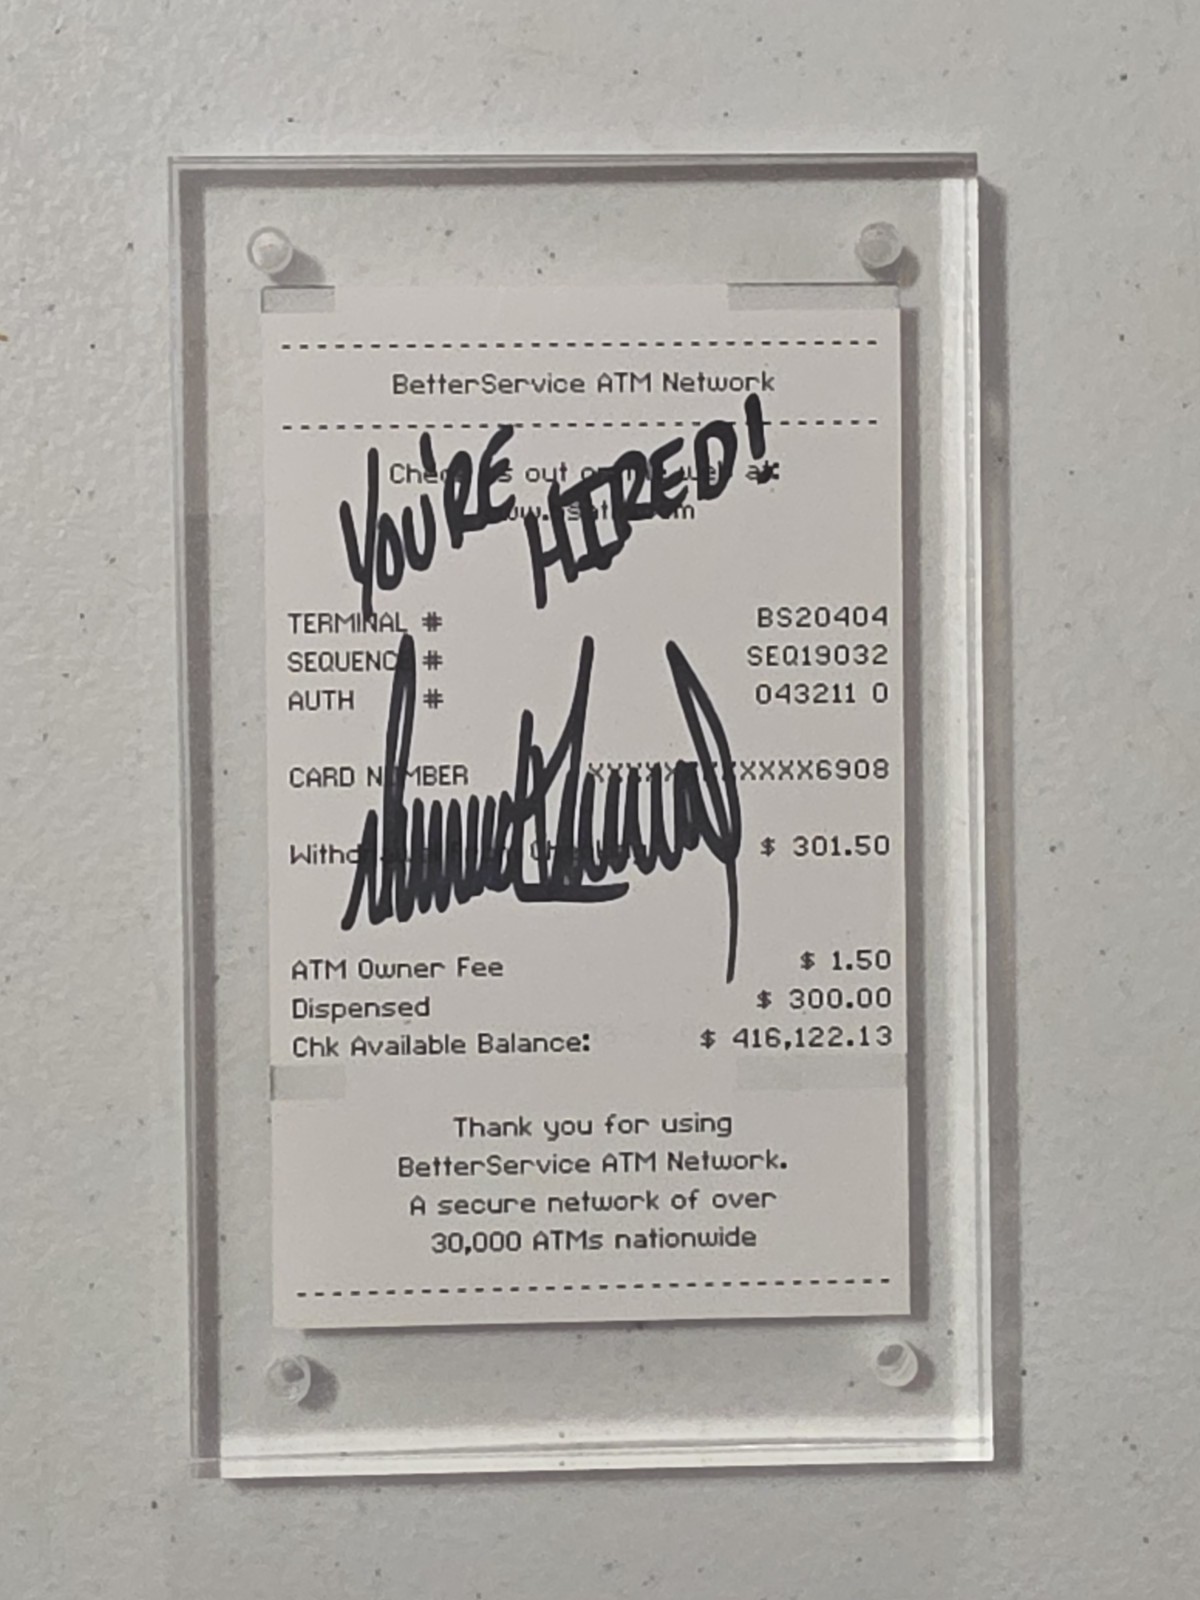 BetterService ATM Network
out at:
YOU'RE HIRED!
TERMINAL # BS20404
SEQUENCE # SEQ19032
AUTH # 043211 0
CARD NUMBER 6908
$ 301.50
ATM Owner Fee $ 1.50
Dispensed $ 300.00
Chk Available Balance: $ 416,122.13
Thank you for using
BetterService ATM Network.
A secure network of over
30,000 ATMs nationwide